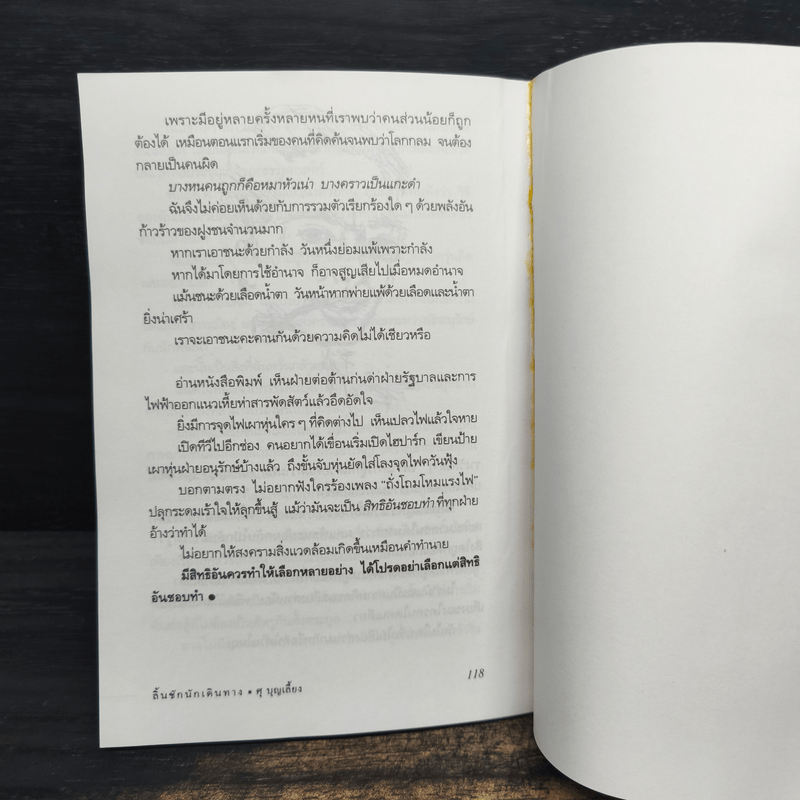 เพราะมีอยู่หลายครั้งหลายหนที่เราพบว่าคนส่วนน้อยก็ถูก
ต้องได้ เหมือนตอนแรกเริ่มของคนที่คิดค้นจนพบว่าโลกกลม จนต้อง
กลายเป็นคนผิด
บางหนคนถูกก็คือหมาหัวเน่า บางคราวเป็นแกะดำ
ฉันจึงไม่ค่อยเห็นด้วยกับการรวมตัวเรียกร้องใด ๆ ด้วยพลังอัน
ก้าวร้าวของฝูงชนจำนวนมาก
หากเราเอาชนะด้วยกำลัง วันหนึ่งย่อมแพ้เพราะกำลัง
หากได้มาโดยการใช้อำนาจ ก็อาจสูญเสียไปเมื่อหมดอำนาจ
แม้นชนะด้วยเลือดน้ำตา วันหน้าหากพ่ายแพ้ด้วยเลือดและน้ำตา
ยิ่งน่าเศร้า
เราจะเอาชนะคะคานกันด้วยความคิดไม่ได้เชียวหรือ
อ่านหนังสือพิมพ์ เห็นฝ่ายต่อต้านก่นด่าฝ่ายรัฐบาลและการ
ไฟฟ้าออกแนวเหี้ยห่าสารพัดสัตว์แล้วอึดอัดใจ
ยิ่งมีการจุดไฟเผาหุ่นใคร ๆ ที่คิดต่างไป เห็นเปลวไฟแล้วใจหาย
เปิดทีวีไปอีกช่อง คนอยากได้เขื่อนเริ่มเปิดไฮปาร์ก เขียนป้าย
เผาหุ่นฝ่ายอนุรักษ์บ้างแล้ว ถึงขั้นจับหุ่นยัดใส่โลงจุดไฟควันฟุ้ง
บอกตามตรง ไม่อยากฟังใครร้องเพลง "ถั่งโถมโหมแรงไฟ"
ปลุกระดมเร้าใจให้ลุกขึ้นสู้ แม้ว่ามันจะเป็น สิทธิอันชอบทำ ที่ทุกฝ่าย
อ้างว่าทำได้
ไม่อยากให้สงครามสิ่งแวดล้อมเกิดขึ้นเหมือนคำทำนาย
มีสิทธิอันควรทำให้เลือกหลายอย่าง ได้โปรดอย่าเลือกแต่สิทธิ
อันชอบทำ ●
118
ลิ้นชักนักเดินทาง • ศุ บุญเลี้ยง